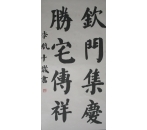 欽門集慶
勝宅傳祥